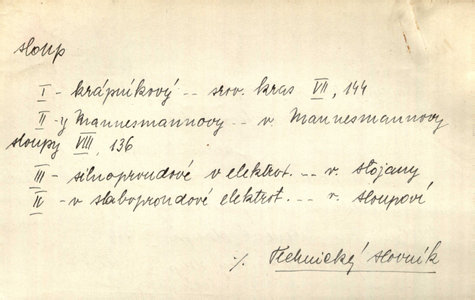 sloup
I - krápníkový -- srov. kras VII, 144
II - y Mannesmannovy -- v. Mannesmannovy
sloupy VIII, 136
III - silnoproudové v elektrot. -- v. stojany
II - v slaboproudové elektrot. -- v. sloupoví
./. Technický slovník